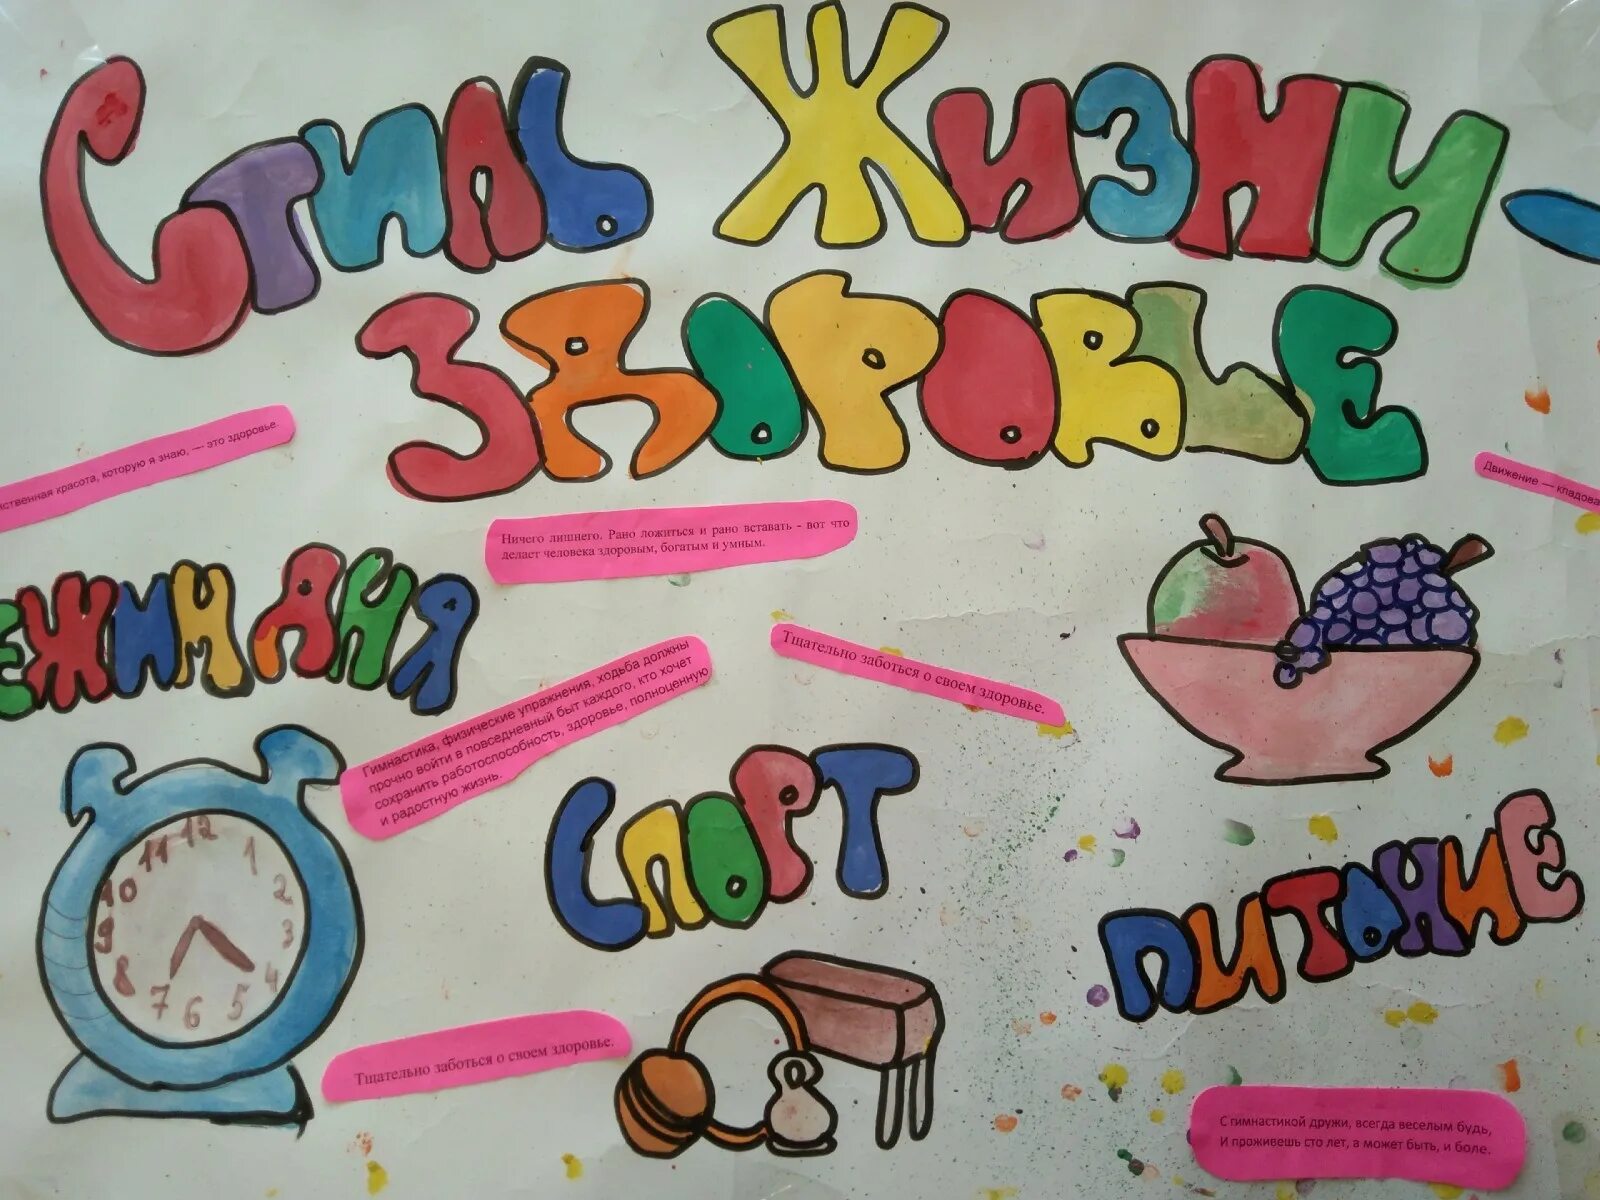 Стиль Жизни-
Здоровье
которую я знаю, — это здоровье
Движение —
Ничего лишнего. Рано ложиться и рано вставать - вот что
делает человека здоровым, богатым и умным.
ежим дня
Гимнастика, физические упражнения, ходьба должны
прочно войти в повседневный быт каждого, кто хочет
сохранить работоспособность, здоровье, полноценную
и радостную жизнь.
Тщательно заботься о своем здоровье.
12
11 1
10 2
9 3
8 4
7 6 5
Спорт
питание
Тщательно заботься о своем здоровье.
С гимнастикой дружи, всегда веселым будь,
И проживешь сто лет, а может быть, и боле.